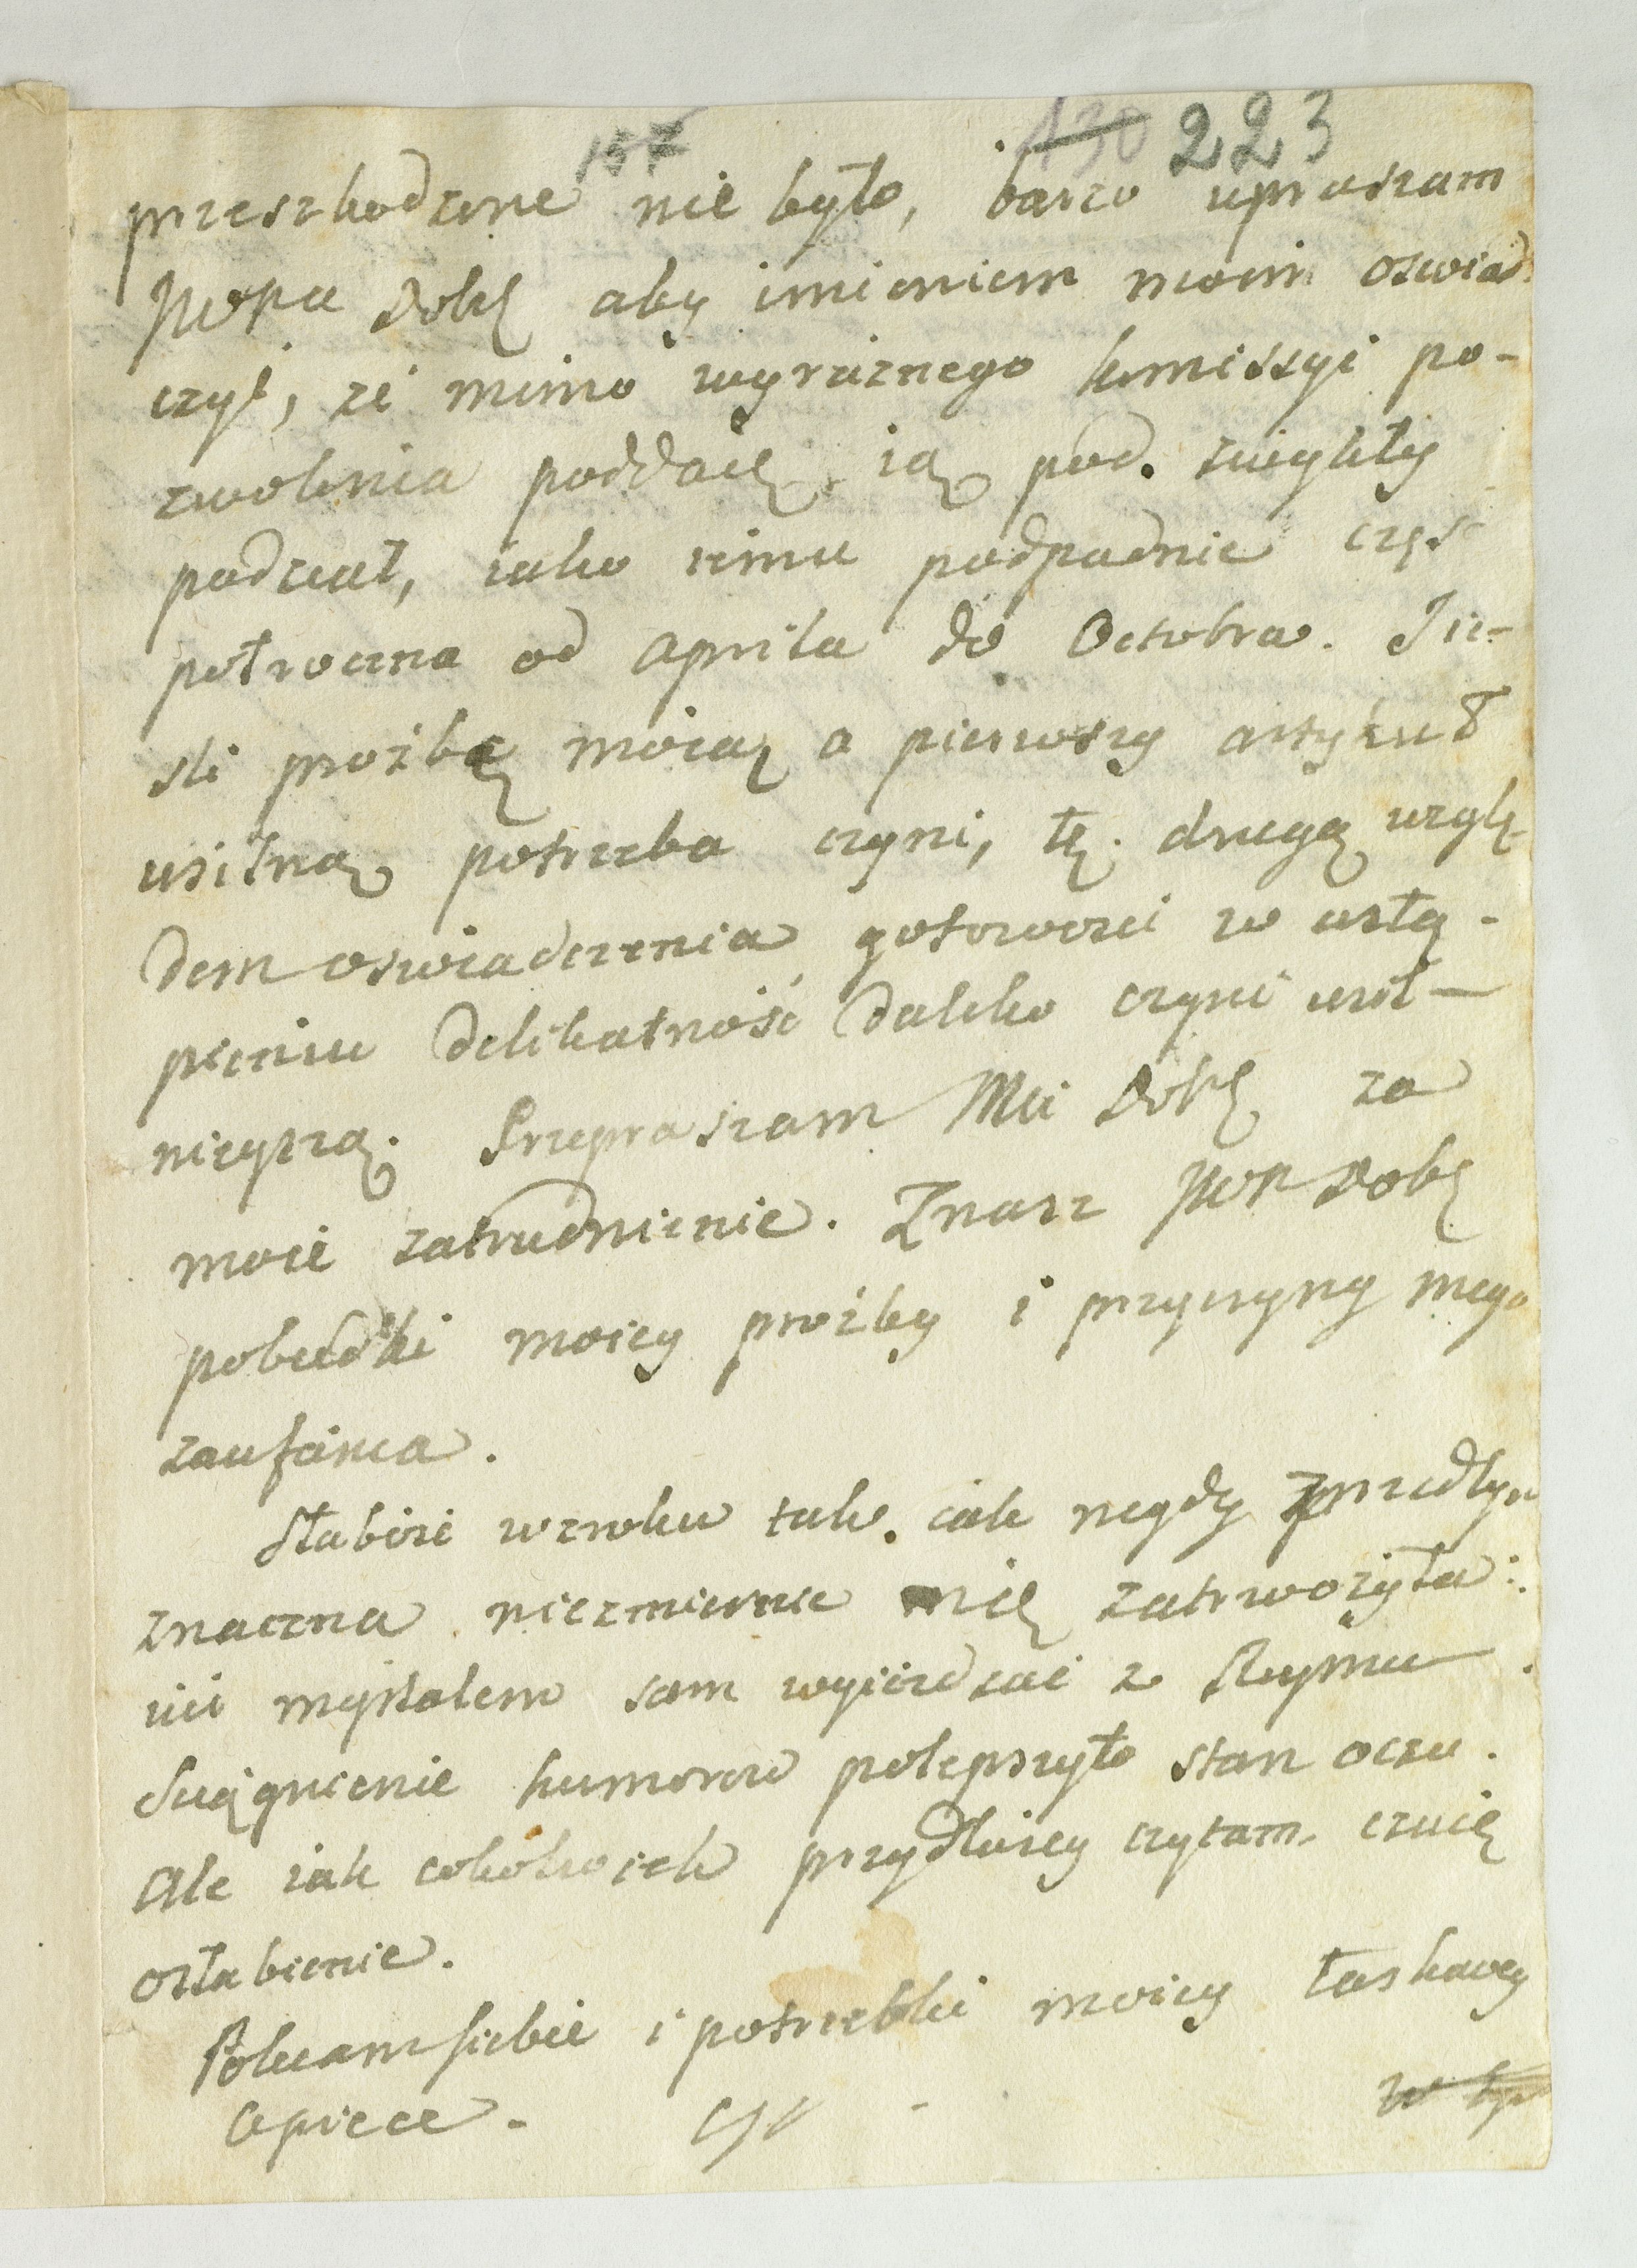 157 130 223
przeszkodzone nie było, barzo upraszam
JWPana Dobr aby imieniem moim oswiad-
czył, że mimo wyraznego komissyi po-
zwolenia poddaię ią pod zwykły
podział, iako iemu podpadnie częś
połroczna od Aprila do Octobra. Jie-
sli proźbę moią o pierwszy artykuł
usilną potrzeba czyni, tę drugą wzglę-
dem oswiadczenia gotowości w ustą-
pieniu delikatność daleko czyni usil-
nieyszą. Przepraszam Mci Dobr za
moie zatrudnienie. Znasz JWP Dobr
pobudki moiey proźby i przyczyny mego
zaufania.
Słabość wzroku tak iak nigdy przedtym
znaczna niezmiernie mię zatrwożyła:
iuż myślałem sam wyieżdzać z Rzymu.
Sciągnienie humorow polepszyło stan oczu.
Ale iak cokolwiek przydłużey czytam, czuię
osłabienie.
Polecam siebie i potrzebki moiey łaskawey
Opiece.